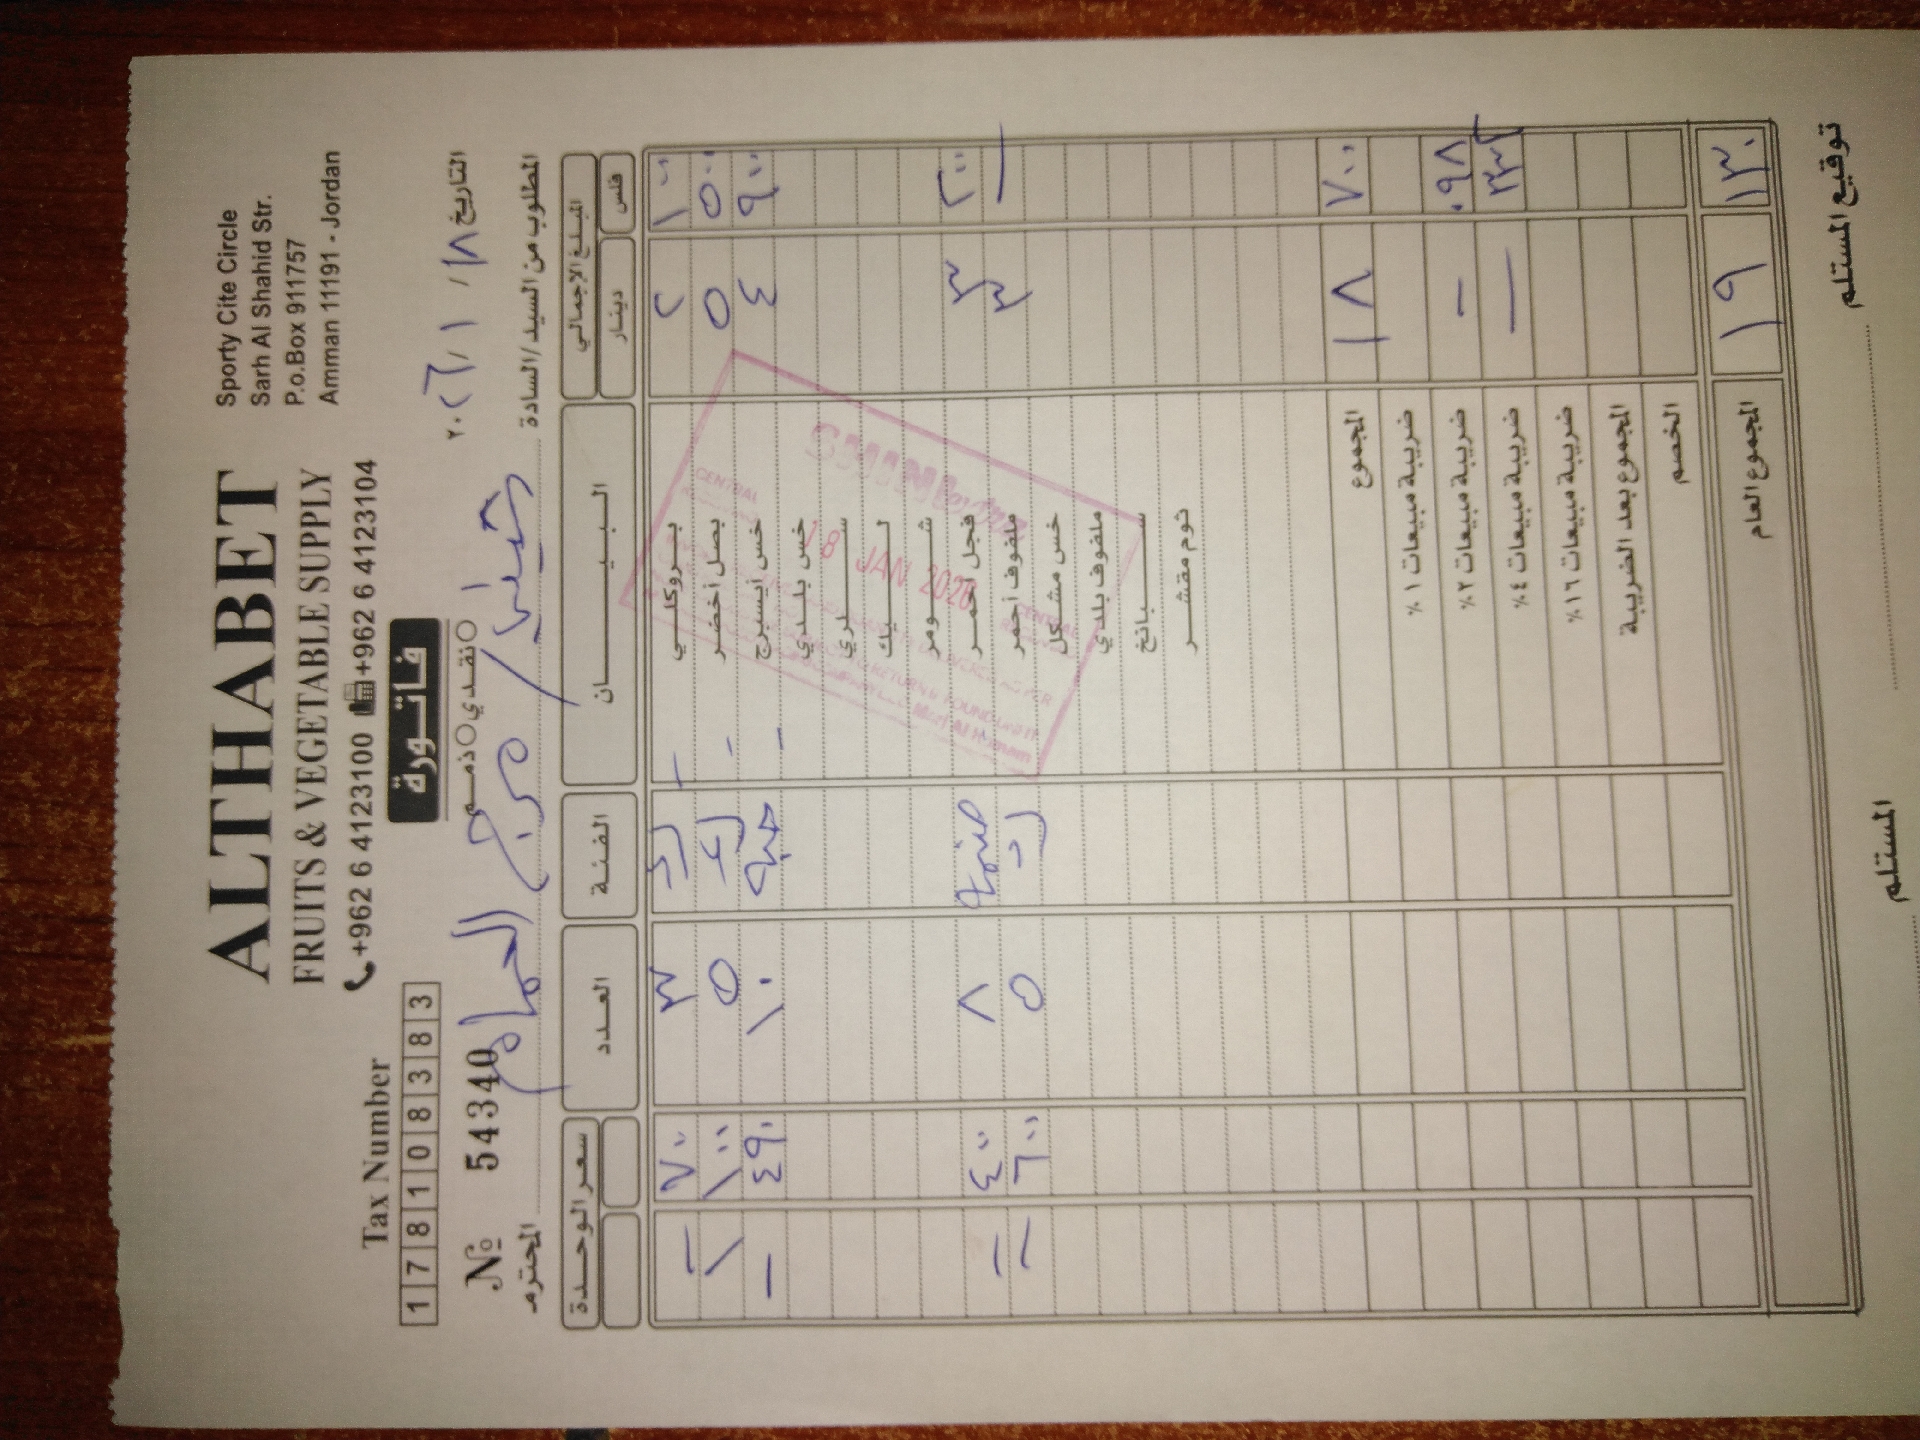 ALTHABET
FRUITS & VEGETABLE SUPPLY
+962 6 4123100 +962 6 4123104
Sporty Cite Circle
Sarh Al Shahid Str.
P.o.Box 911757
Amman 11191 - Jordan
Tax Number
1 7 8 1 1 0 8 3 8 3
فاتورة
نقدي ذمم
№ 54340
التاريخ ١٨ / ١ / ٢٠٢٦
المطلوب من السيد/السادة
مرج الحمام
المحترم
المبلغ الإجمالي البيـــــان الفئة العدد سعر الوحدة
فلس دينار
١٠٠ ٢ بروكلي ٣ ٧٠٠ -
٥٠٠ ٥ بصل أخضر ٥ ١٠٠ ١
٩٠٠ ٤ خس أيسبرج حبة ١٠ ٤٩٠ -
خس بلدي
سلري
ليك
شومر
٢٠٠ ٣ فجل أحمر ضمة ٨ ٤٠٠ -
- ٣ ملفوف أحمر ٥ ٦٠٠ -
خس مشكل
ملفوف بلدي
سبانخ
ثوم مقشر
CENTRAL
18 JAN 2026
٧٠٠ ١٨ المجموع
ضريبة مبيعات ١ %
٠٩٨ - ضريبة مبيعات ٢ %
٣٣٢ - ضريبة مبيعات ٤ %
ضريبة مبيعات ١٦ %
المجموع بعد الضريبة
الخصم
١٣٠ ١٩ المجموع العام
توقيع المستلم
المستلم